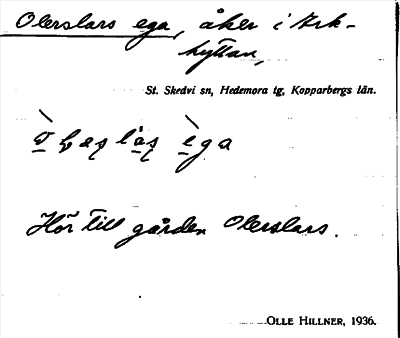 Olerslars ega, åker i Ark-
hyttan,
St. Skedvi sn, Hedemora tg, Kopparbergs län.
ega
Hör till gården Olerslars.
OLLE HILLNER, 1936.